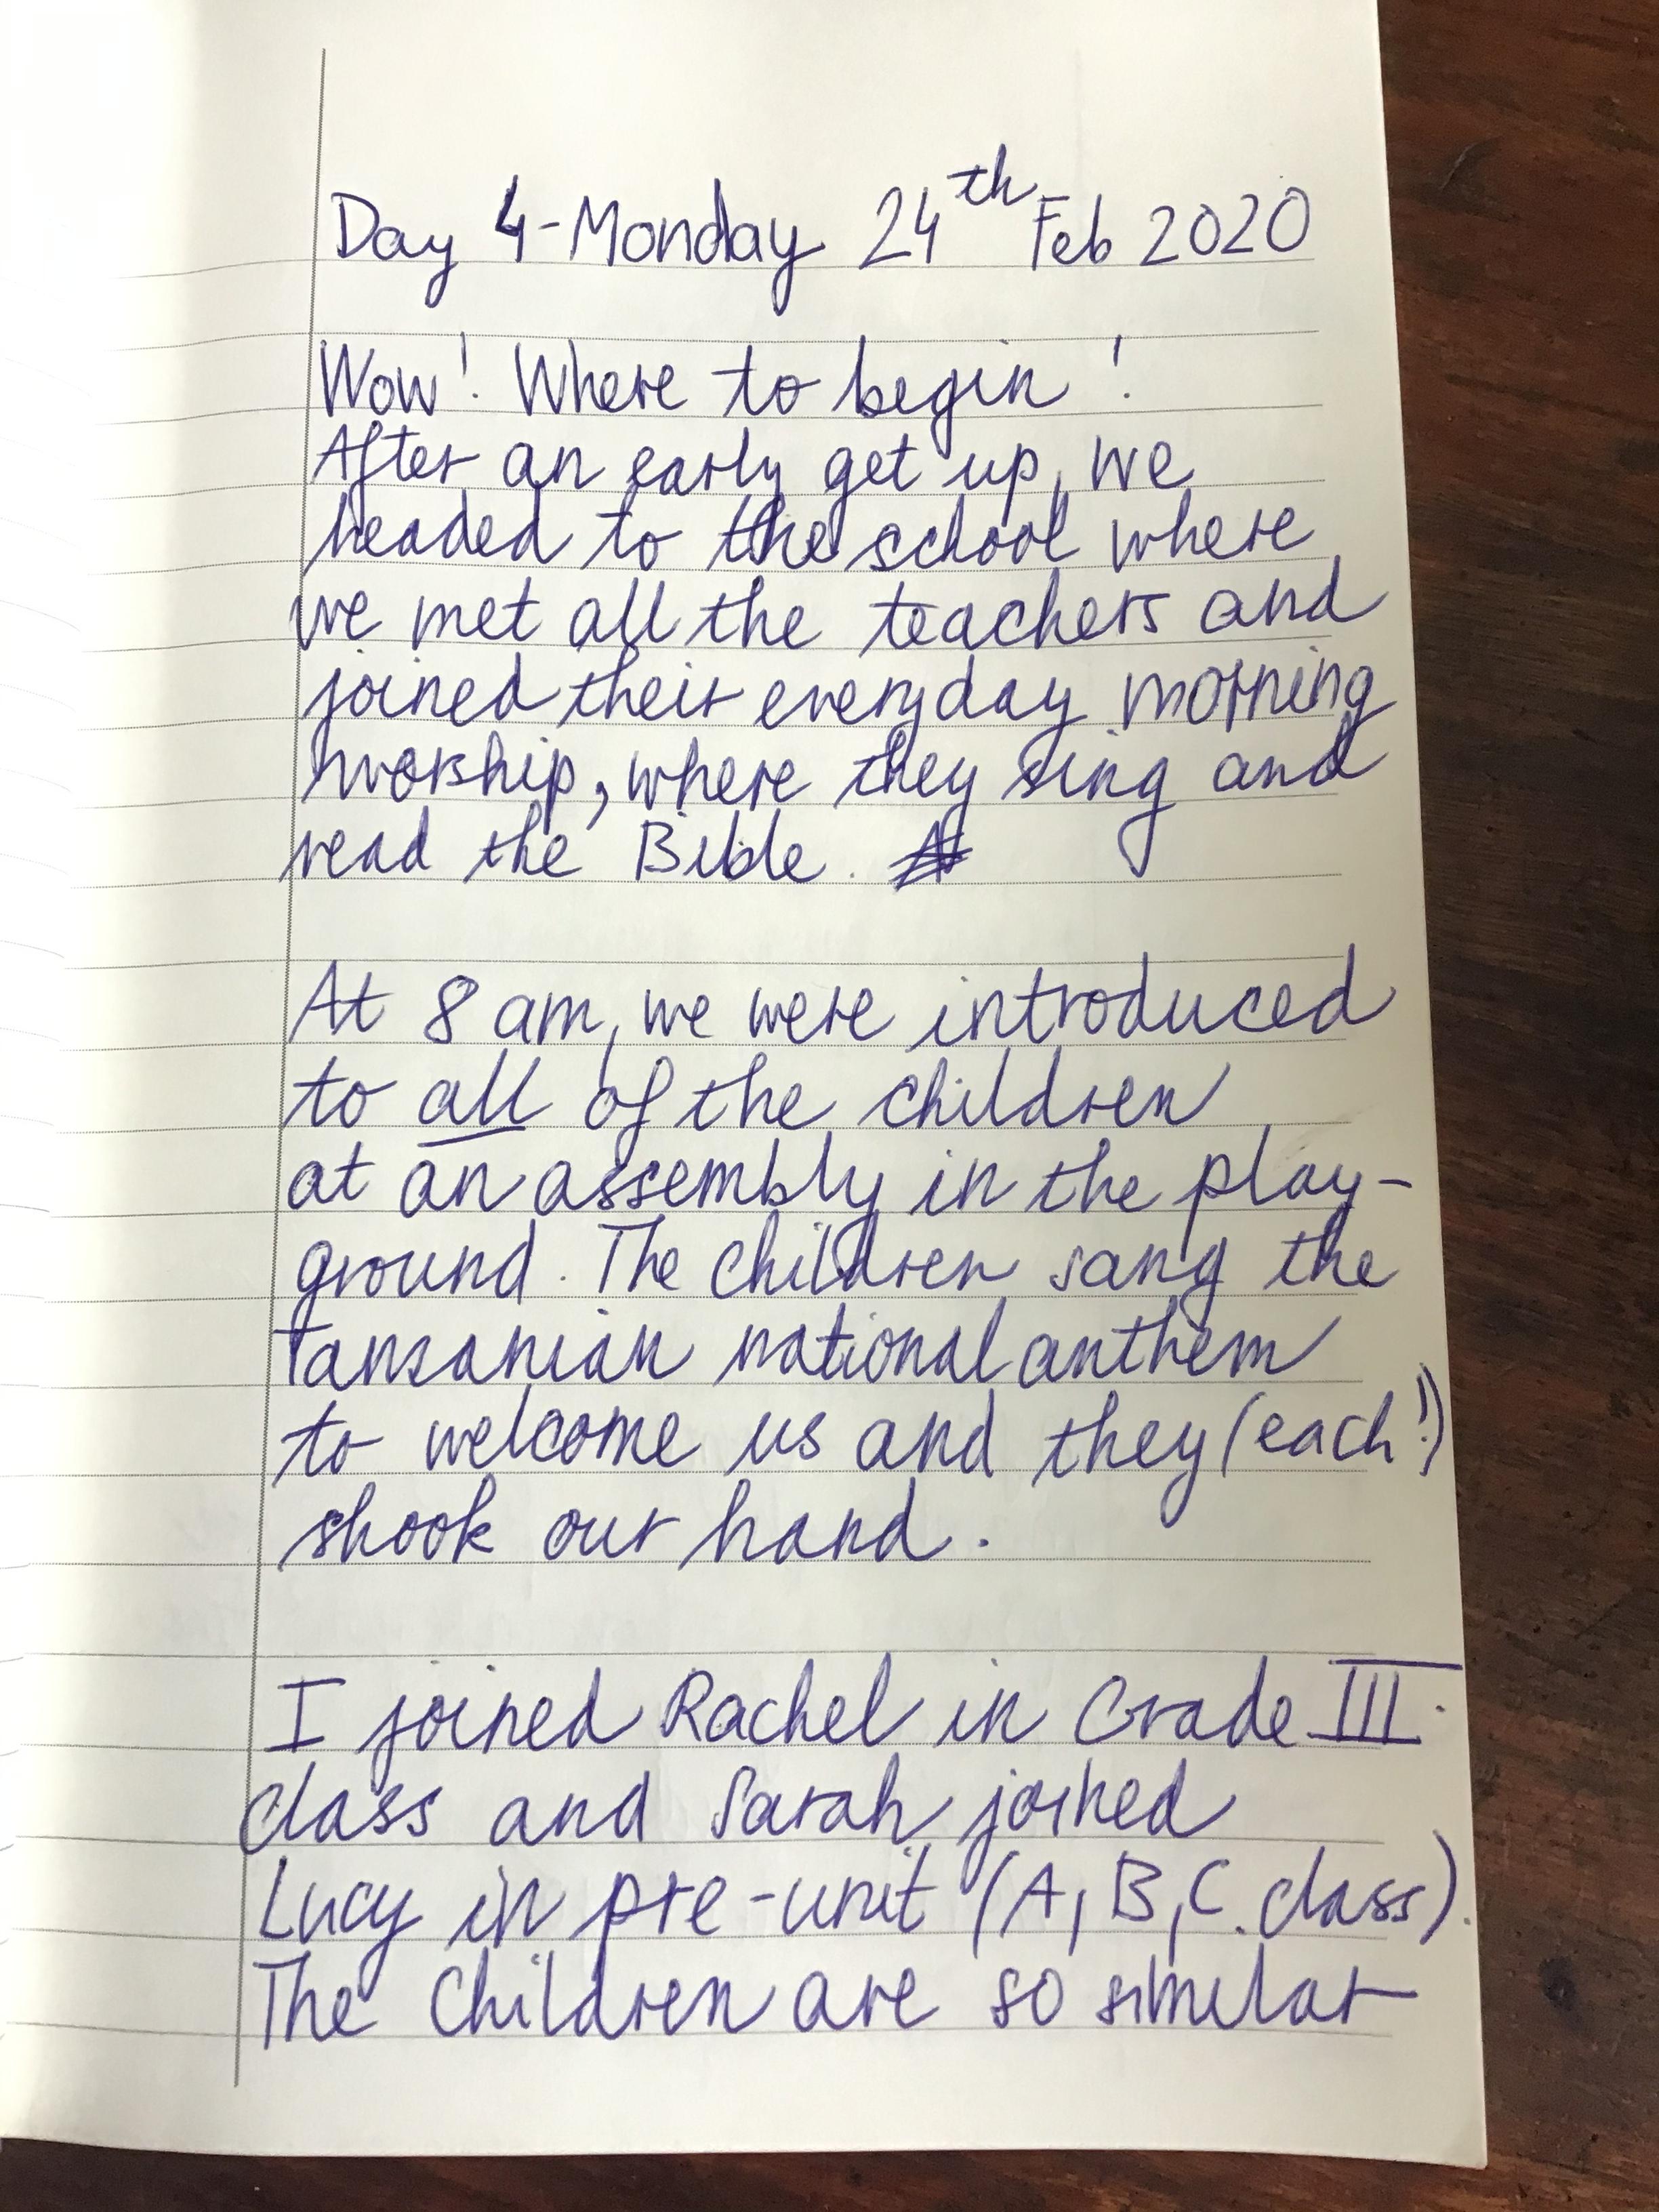 Day 4-Monday 24th Feb 2020
Wow! Where to begin!
After an early get up, we
headed to the school where
we met all the teachers and
joined their everyday morning
worship, where they sing and
read the Bible.
At 8 am, we were introduced
to all of the children
at an assembly in the play-
ground. The children sang the
Tansanian national anthem
to welcome us and they (each!)
shook our hand.
I joined Rachel in Grade III
class and Sarah joined
Lucy in pre-unit (A, B, C. class).
The children are so similar